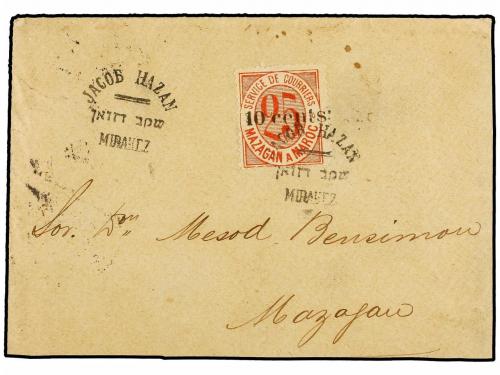 JACOB HAZAN
MURAKEZ
SERVICE DE COURRIERS
25
10 cents:
MAZAGAN A MAROC
JACOB HAZAN
MURAKEZ
Sor. Dn Mesod Bensimon
Mazagan